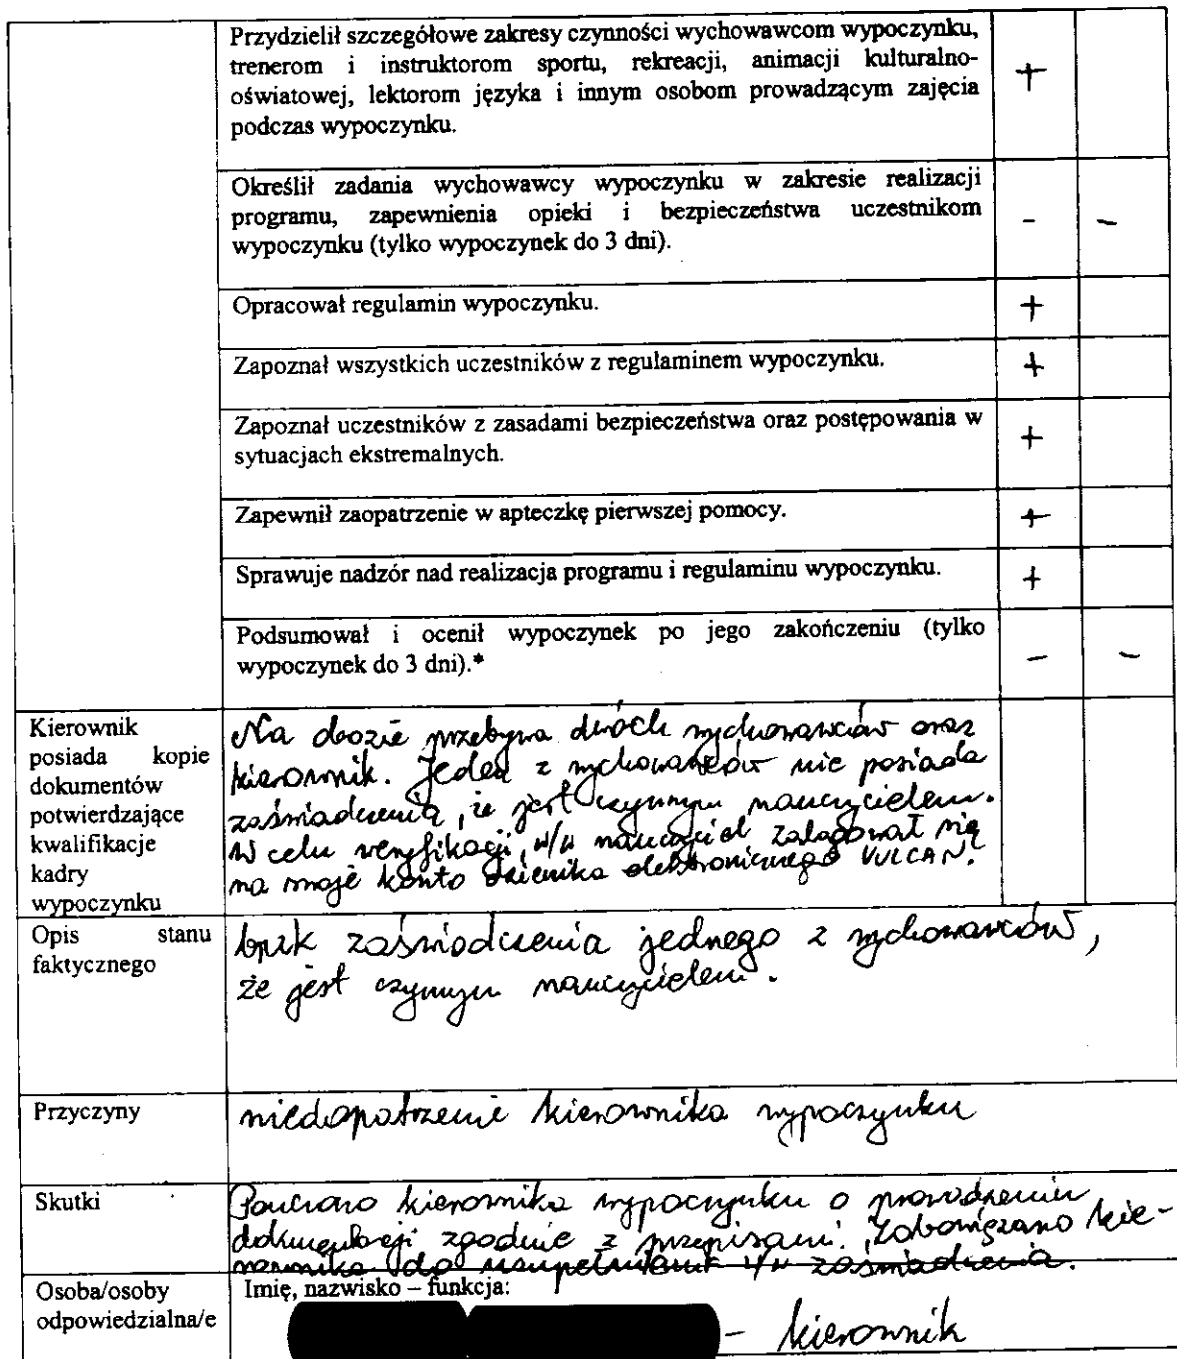 Przydzielił szczegółowe zakresy czynności wychowawcom wypoczynku,
trenerom i instruktorom sportu, rekreacji, animacji kulturalno-
oświatowej, lektorom języka i innym osobom prowadzącym zajęcia
podczas wypoczynku. +
Określił zadania wychowawcy wypoczynku w zakresie realizacji
programu, zapewnienia opieki i bezpieczeństwa uczestnikom
wypoczynku (tylko wypoczynek do 3 dni). - -
Opracował regulamin wypoczynku. +
Zapoznał wszystkich uczestników z regulaminem wypoczynku. +
Zapoznał uczestników z zasadami bezpieczeństwa oraz postępowania w
sytuacjach ekstremalnych. +
Zapewnił zaopatrzenie w apteczkę pierwszej pomocy. +
Sprawuje nadzór nad realizacja programu i regulaminu wypoczynku. +
Podsumował i ocenił wypoczynek po jego zakończeniu (tylko
wypoczynek do 3 dni).* - -
Kierownik
posiada kopie
dokumentów
potwierdzające
kwalifikacje
kadry
wypoczynku
Na obozie przebywa dwóch wychowawców oraz
kierownik. Jeden z wychowawców nie posiada
zaświadczenia, że jest czynnym nauczycielem.
W celu weryfikacji, w/w nauczyciel zalogował się
na moje konto dziennika elektronicznego VULCAN.
Opis stanu
faktycznego
brak zaświadczenia jednego z wychowawców,
że jest czynnym nauczycielem.
Przyczyny
niedopatrzenie kierownika wypoczynku
Skutki
Pouczono kierownika wypoczynku o prowadzeniu
dokumentacji zgodnie z przepisami. Zobowiązano kie-
rownika do uzupełnienia w/w zaświadczenia.
Osoba/osoby
odpowiedzialna/e
Imię, nazwisko – funkcja:
- kierownik